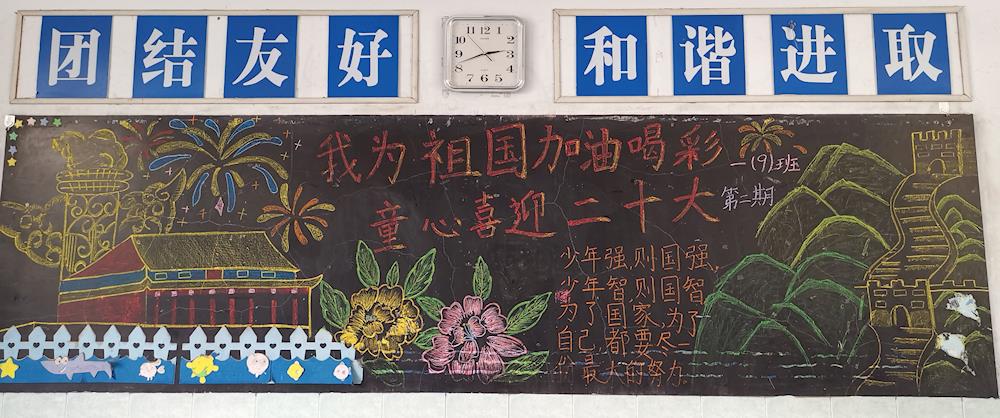 团结友好
和谐进取
11 12 1
10 2
9 3
8 4
7 6 5
我为祖国加油喝彩
一(9)班
童心喜迎二十大
第二期
少年强,则国强,
少年智,则国智
为了国家,为了
自己,都要尽一
份最大的努力。